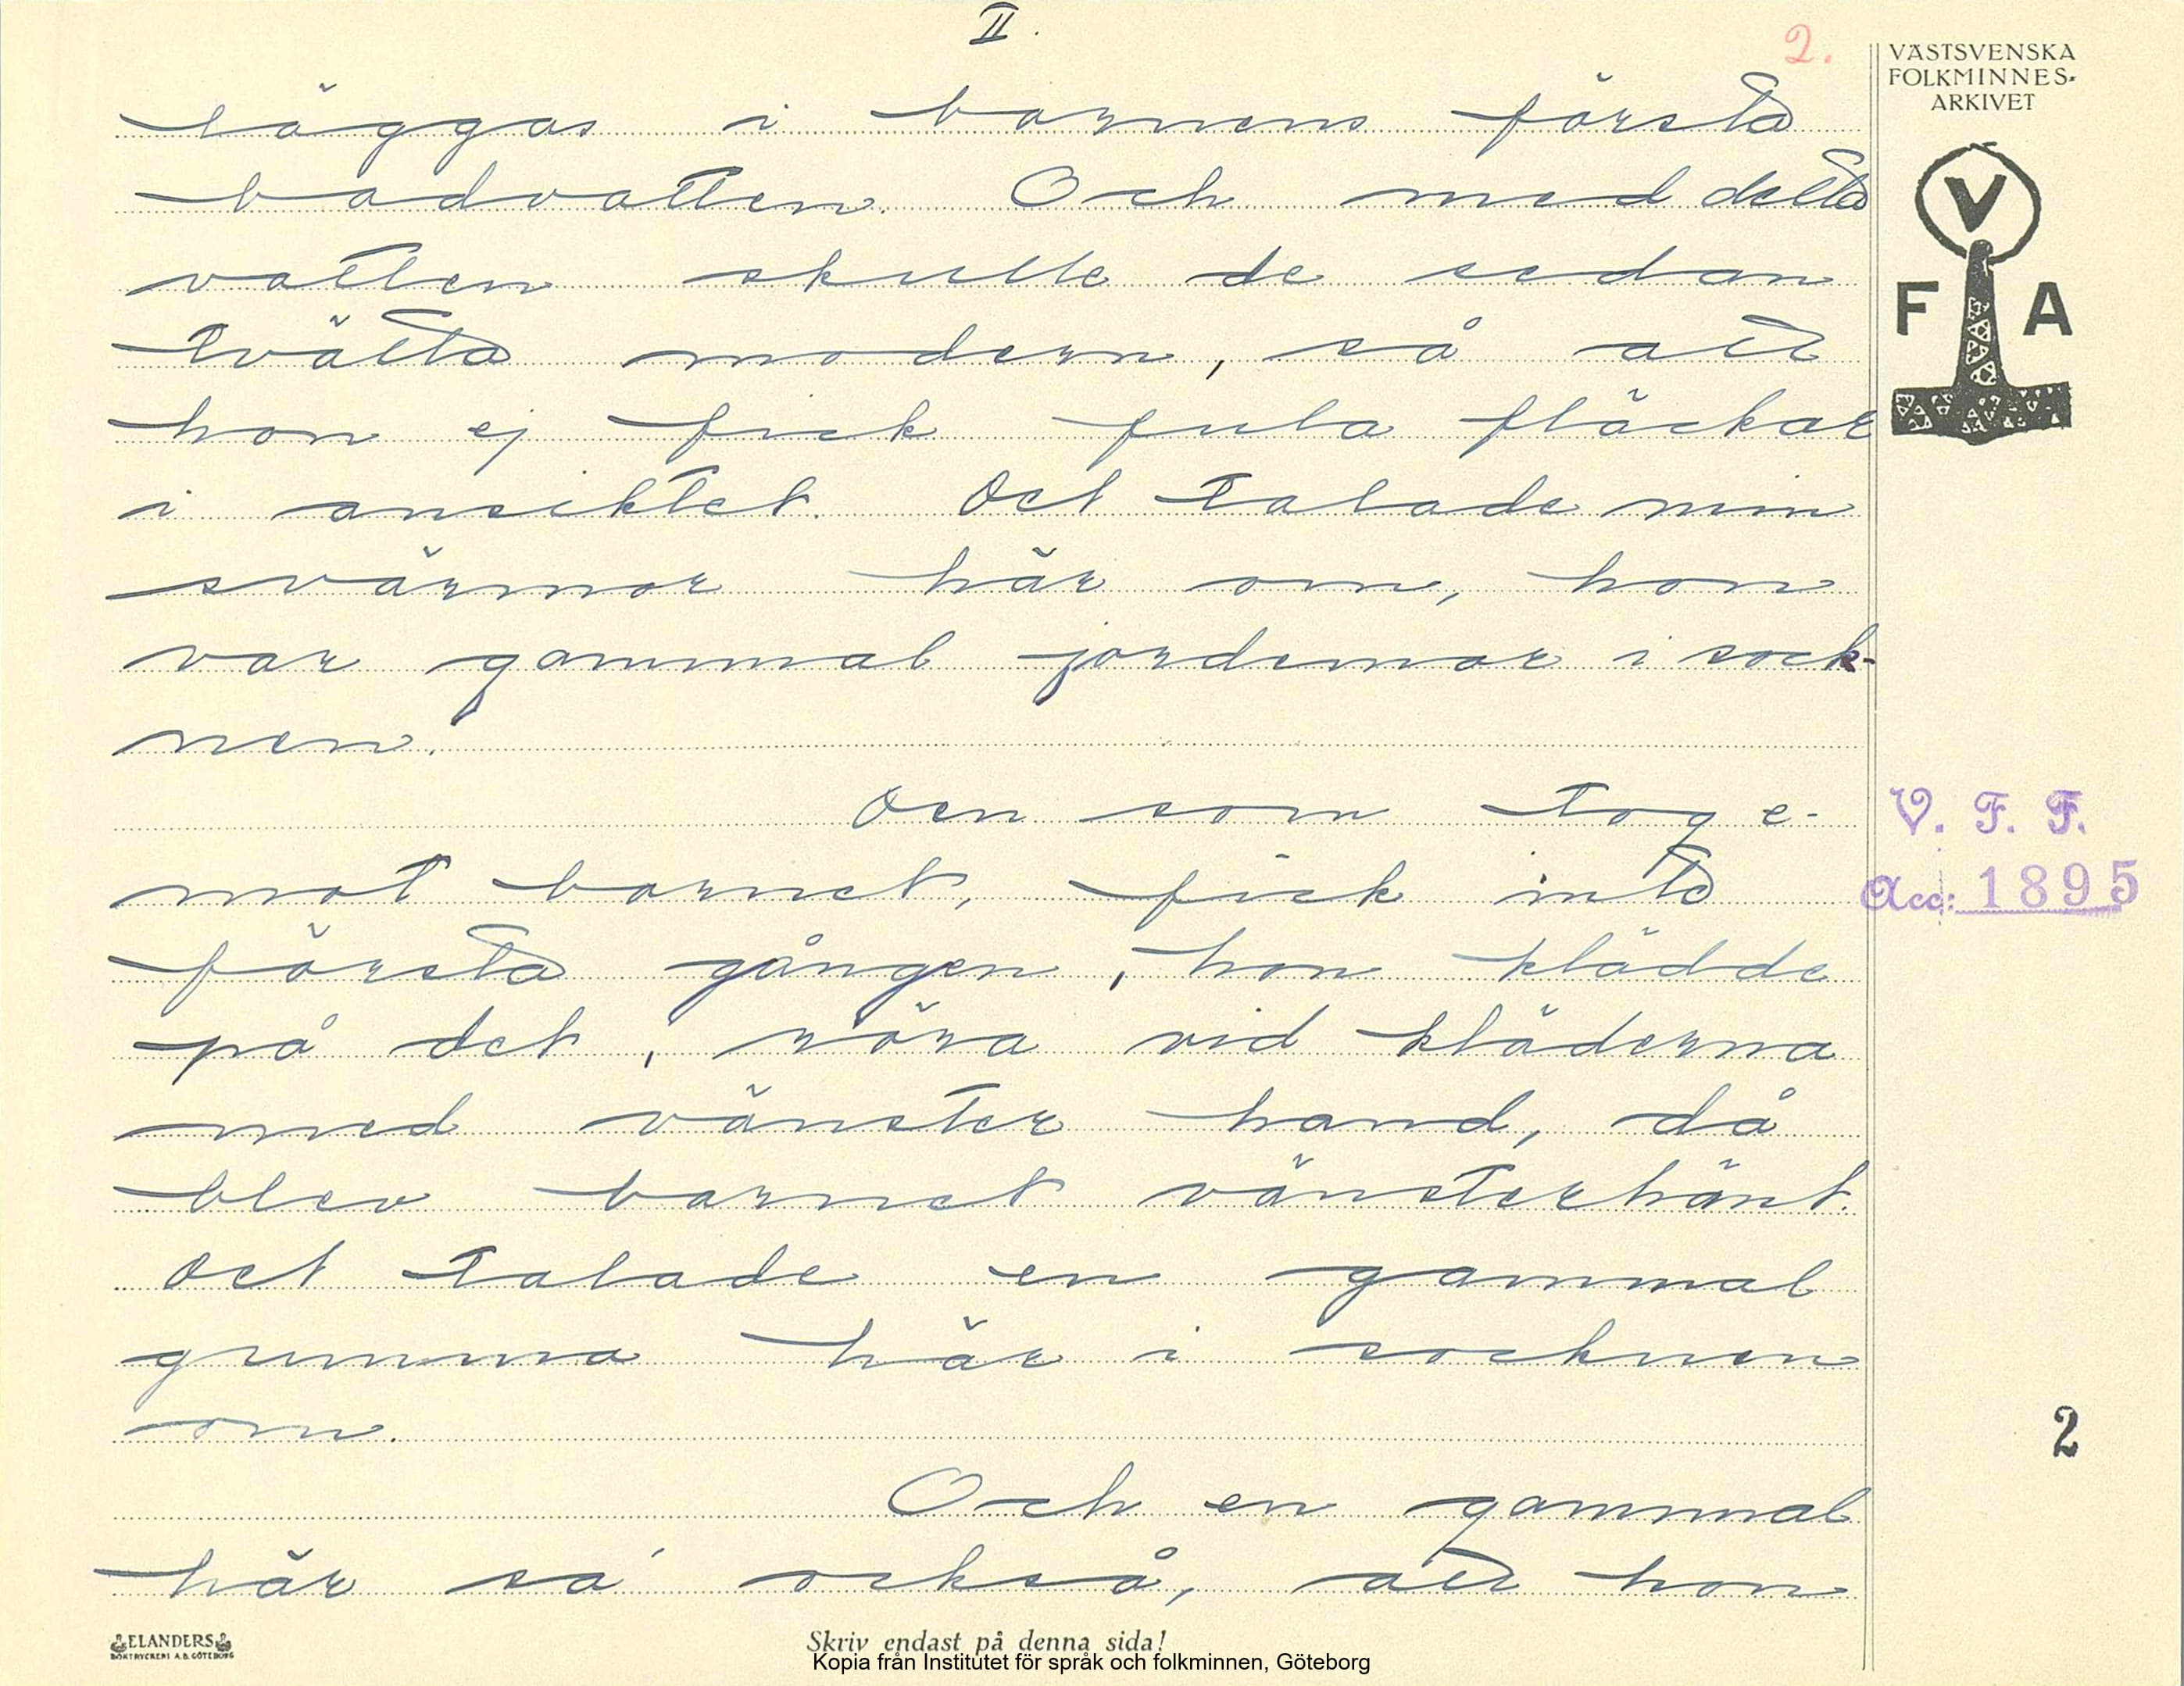 II.
2.
VÄSTSVENSKA
FOLKMINNES-
ARKIVET
V
F A
läggas i barnens första
badvatten. Och med detta
vatten skulle de sedan
tvätta modern, så att
hon ej fick fula fläckar
i ansiktet. Det talade min
svärmor här om, hon
var gammal jordemor i sock-
nen.
Den som tog e-
mot barnet, fick inte
första gången, hon klädde
på det, röra vid kläderna
med vänster hand, då
blev barnet vänsterhänt.
Det talade en gammal
gumma här i socknen
om.
Och en gammal
här sa' också, att hon
V. F. F.
Acc: 1895
2
ELANDERS
BOKTRYCKERI A.B. GÖTEBORG
Skriv endast på denna sida!
Kopia från Institutet för språk och folkminnen, Göteborg